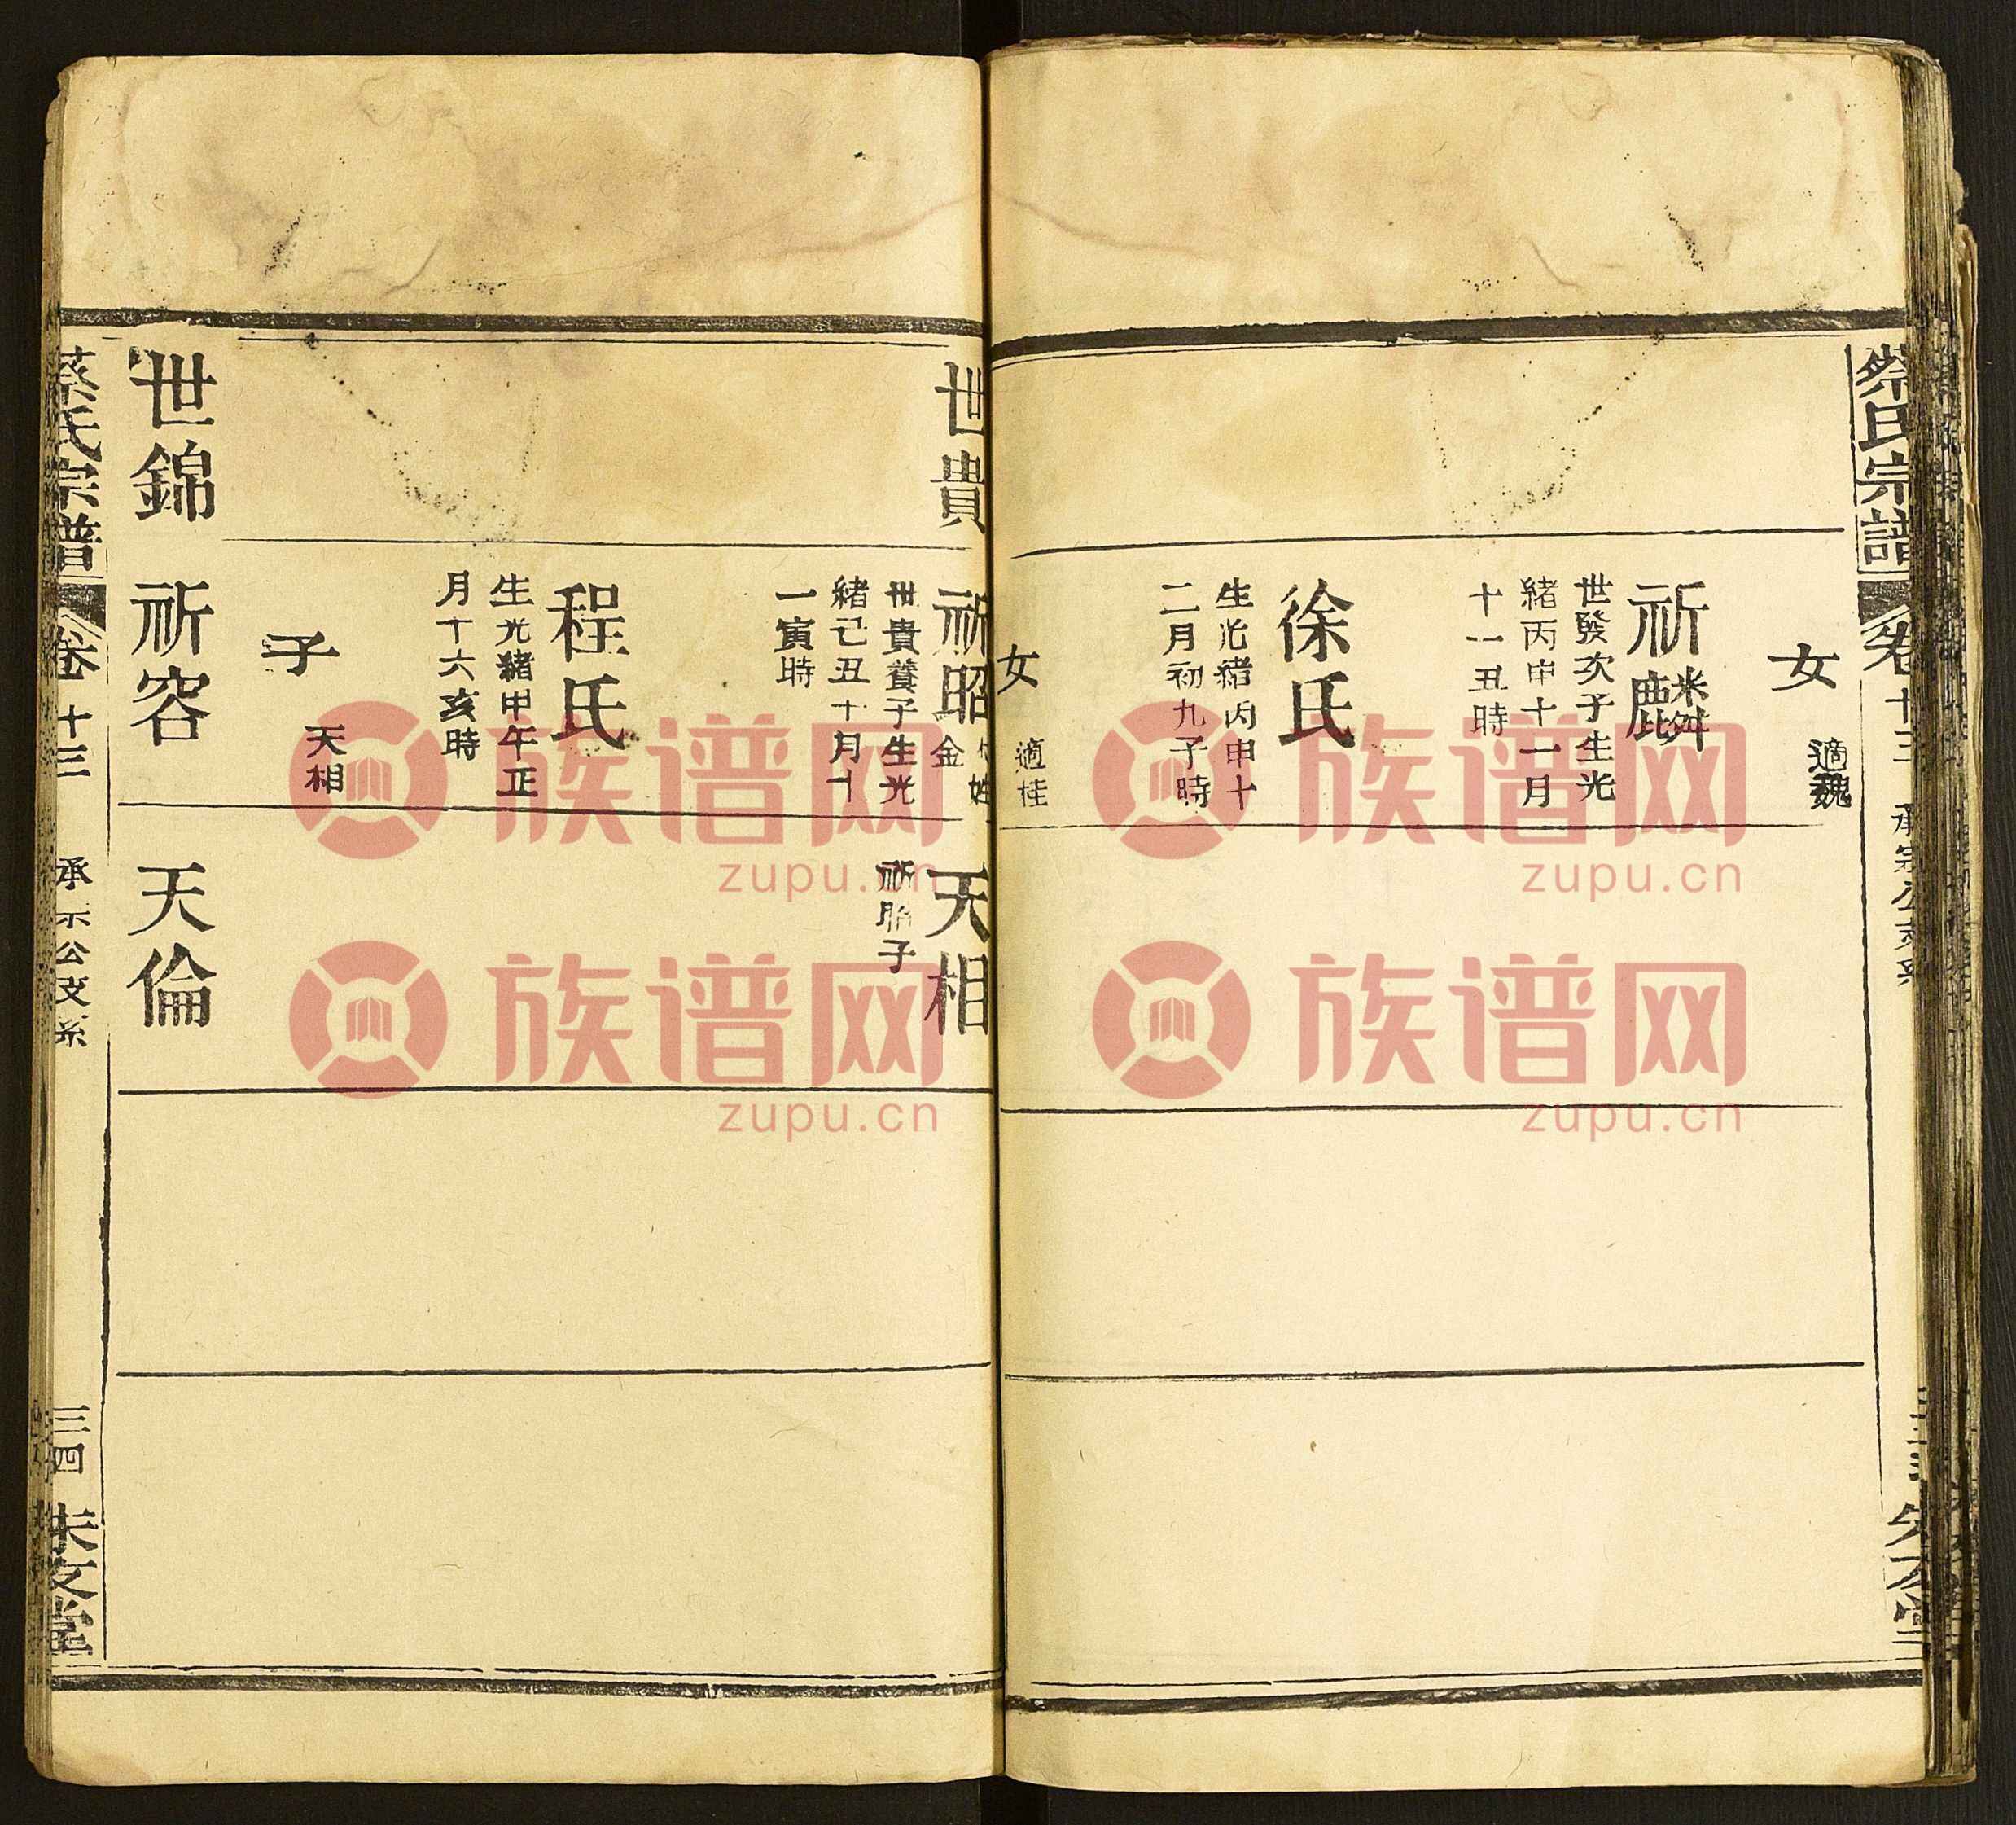 蔡氏宗譜
卷十三
承宗公支系
女
適魏
祈麟
世發次子生光
緒丙申十一月
十一丑時
徐氏
生光緒丙申十
二月初九子時
女
適桂
世貴
祈昭
金
姓
世貴養子生光
緒己丑十月十
一寅時
程氏
生光緒甲午正
月十六亥時
子
天相
天相
祈昭子
世錦
祈容
天倫
蔡氏宗譜
卷十三
承宗公支系
三四
朱文堂
族谱网
zupu.cn
族谱网
zupu.cn
族谱网
zupu.cn
族谱网
zupu.cn